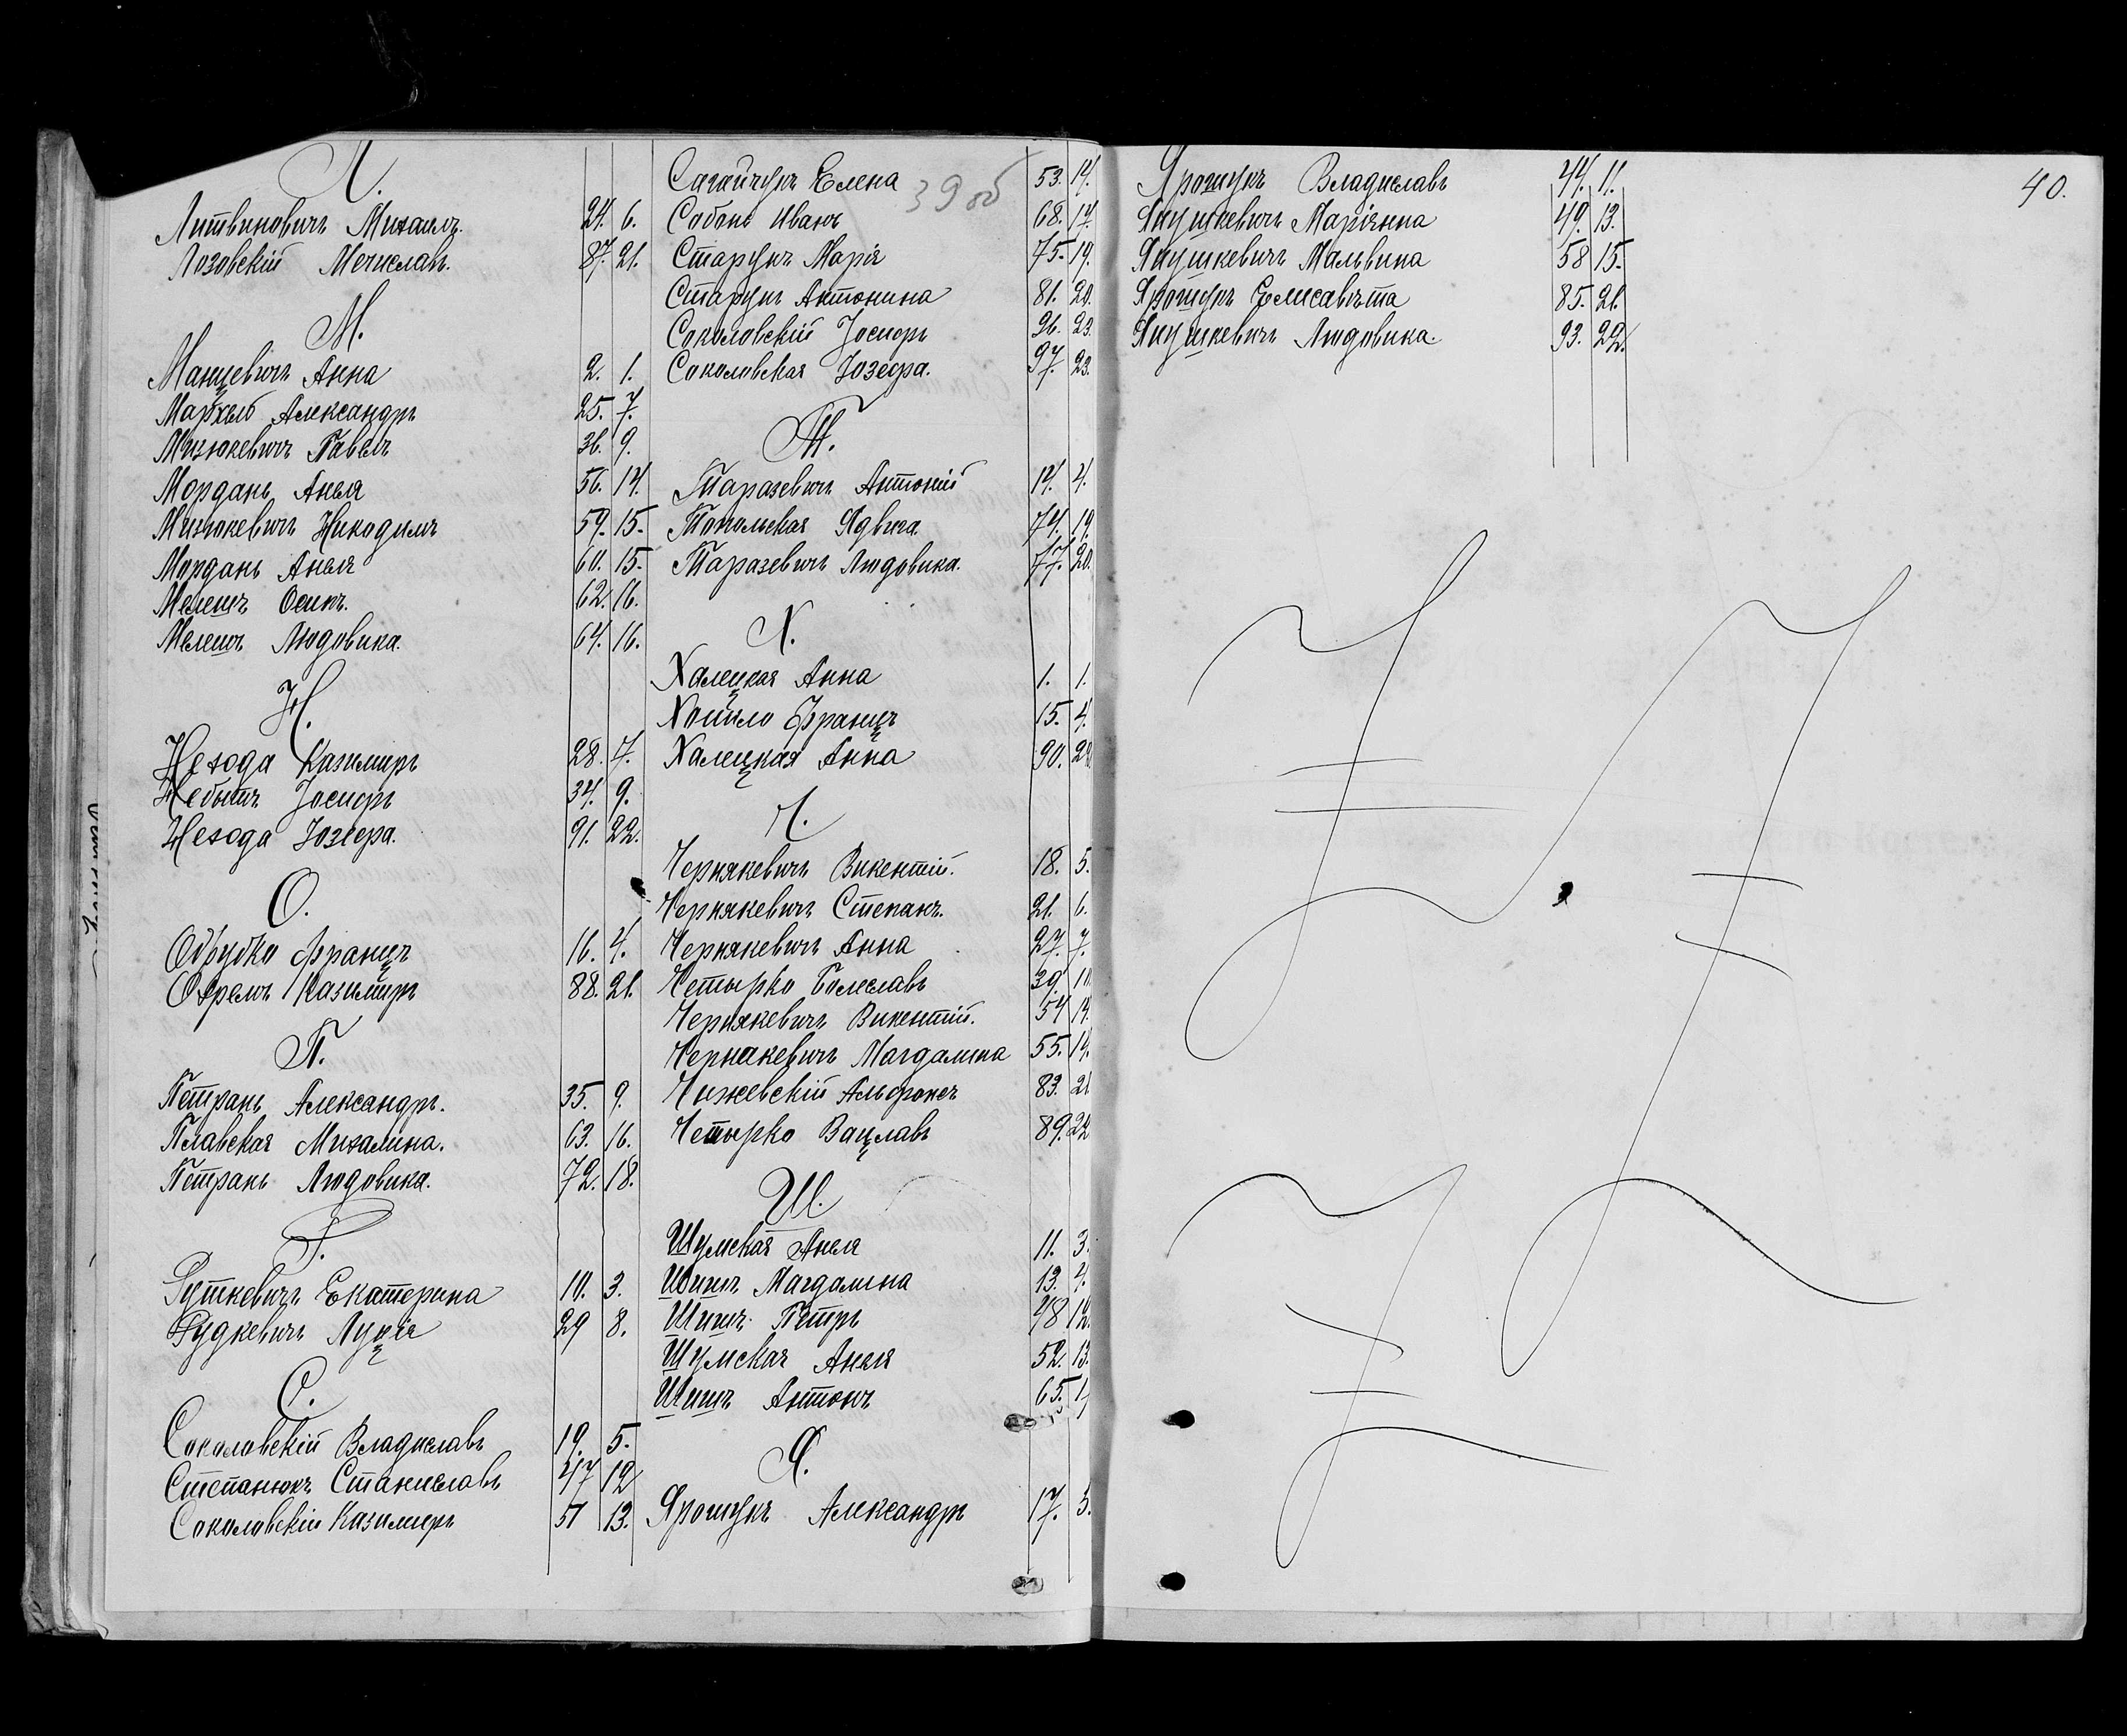 Л.
Литвиновичъ Михаилъ. 24. 6.
Лозовскій Мечиславъ. 87. 21.
М.
Манцевичъ Анна 2. 1.
Мархель Александръ 25. 7.
Мизюкевичъ Павелъ 36. 9.
Морданъ Анеля 56. 14.
Мизюкевичъ Никодимъ 59. 15.
Морданъ Анеля 60. 15.
Мелешъ Осипъ. 62. 16.
Мелешъ Людовика. 64. 16.
Н.
Нехода Казимиръ 28. 7.
Небытъ Іосифъ 34. 9.
Нехода Іозефа. 91. 22.
О.
Обрубко Францъ 16. 4.
Охремъ Казимиръ 88. 21.
П.
Петранъ Александръ. 35. 9.
Плавская Михалина. 63. 16.
Петранъ Людовика. 72. 18.
Р.
Руткевичъ Екатерина 10. 3.
Рудкевичъ Луція 29 8.
С.
Соколовскій Владиславъ 19. 5.
Степанюкъ Станиславъ 47 12
Соколовскій Казимиръ 51 13.
Сагайчукъ Елена 53. 14.
39 об
Собонь Иванъ 68. 17.
Старукъ Марія 75. 19.
Старукъ Антонина 81. 20.
Соколовскій Іосифъ 96. 23.
Соколовская Іозефа. 97. 23.
Т.
Таразевичъ Антоній 14. 4.
Топольская Ядвига. 74. 19.
Таразевичъ Людовика. 77. 20.
Х.
Халецкая Анна 1. 1.
Хоцило Францъ 15. 4.
Халецкая Анна 90. 22.
Ч.
Чернякевичъ Викентій. 18. 5.
Чернякевичъ Степанъ. 21. 6.
Чернякевичъ Анна 27. 7.
Четырко Болеславъ 39. 10.
Чернякевичъ Викентій. 54 14.
Чернакевичъ Магдалина 55. 14.
Чижевскій Альфонсъ 83. 21
Четырко Вацлавъ 89. 22
Ш.
Шумская Анеля 11. 3.
Шишъ Магдалина 13. 4.
Шишъ Петръ 48 12.
Шумская Анеля 52. 13.
Шишъ Антонъ 65.
Я.
Ярошукъ Александръ 17. 5.
Ярошукъ Владиславъ 44. 11.
Янушкевичъ Маріянна 49. 13.
Янушкевичъ Мальвина 58 15.
Ярошукъ Елисавѣта 85. 21.
Янушкевичъ Людовика. 93. 22.
40.